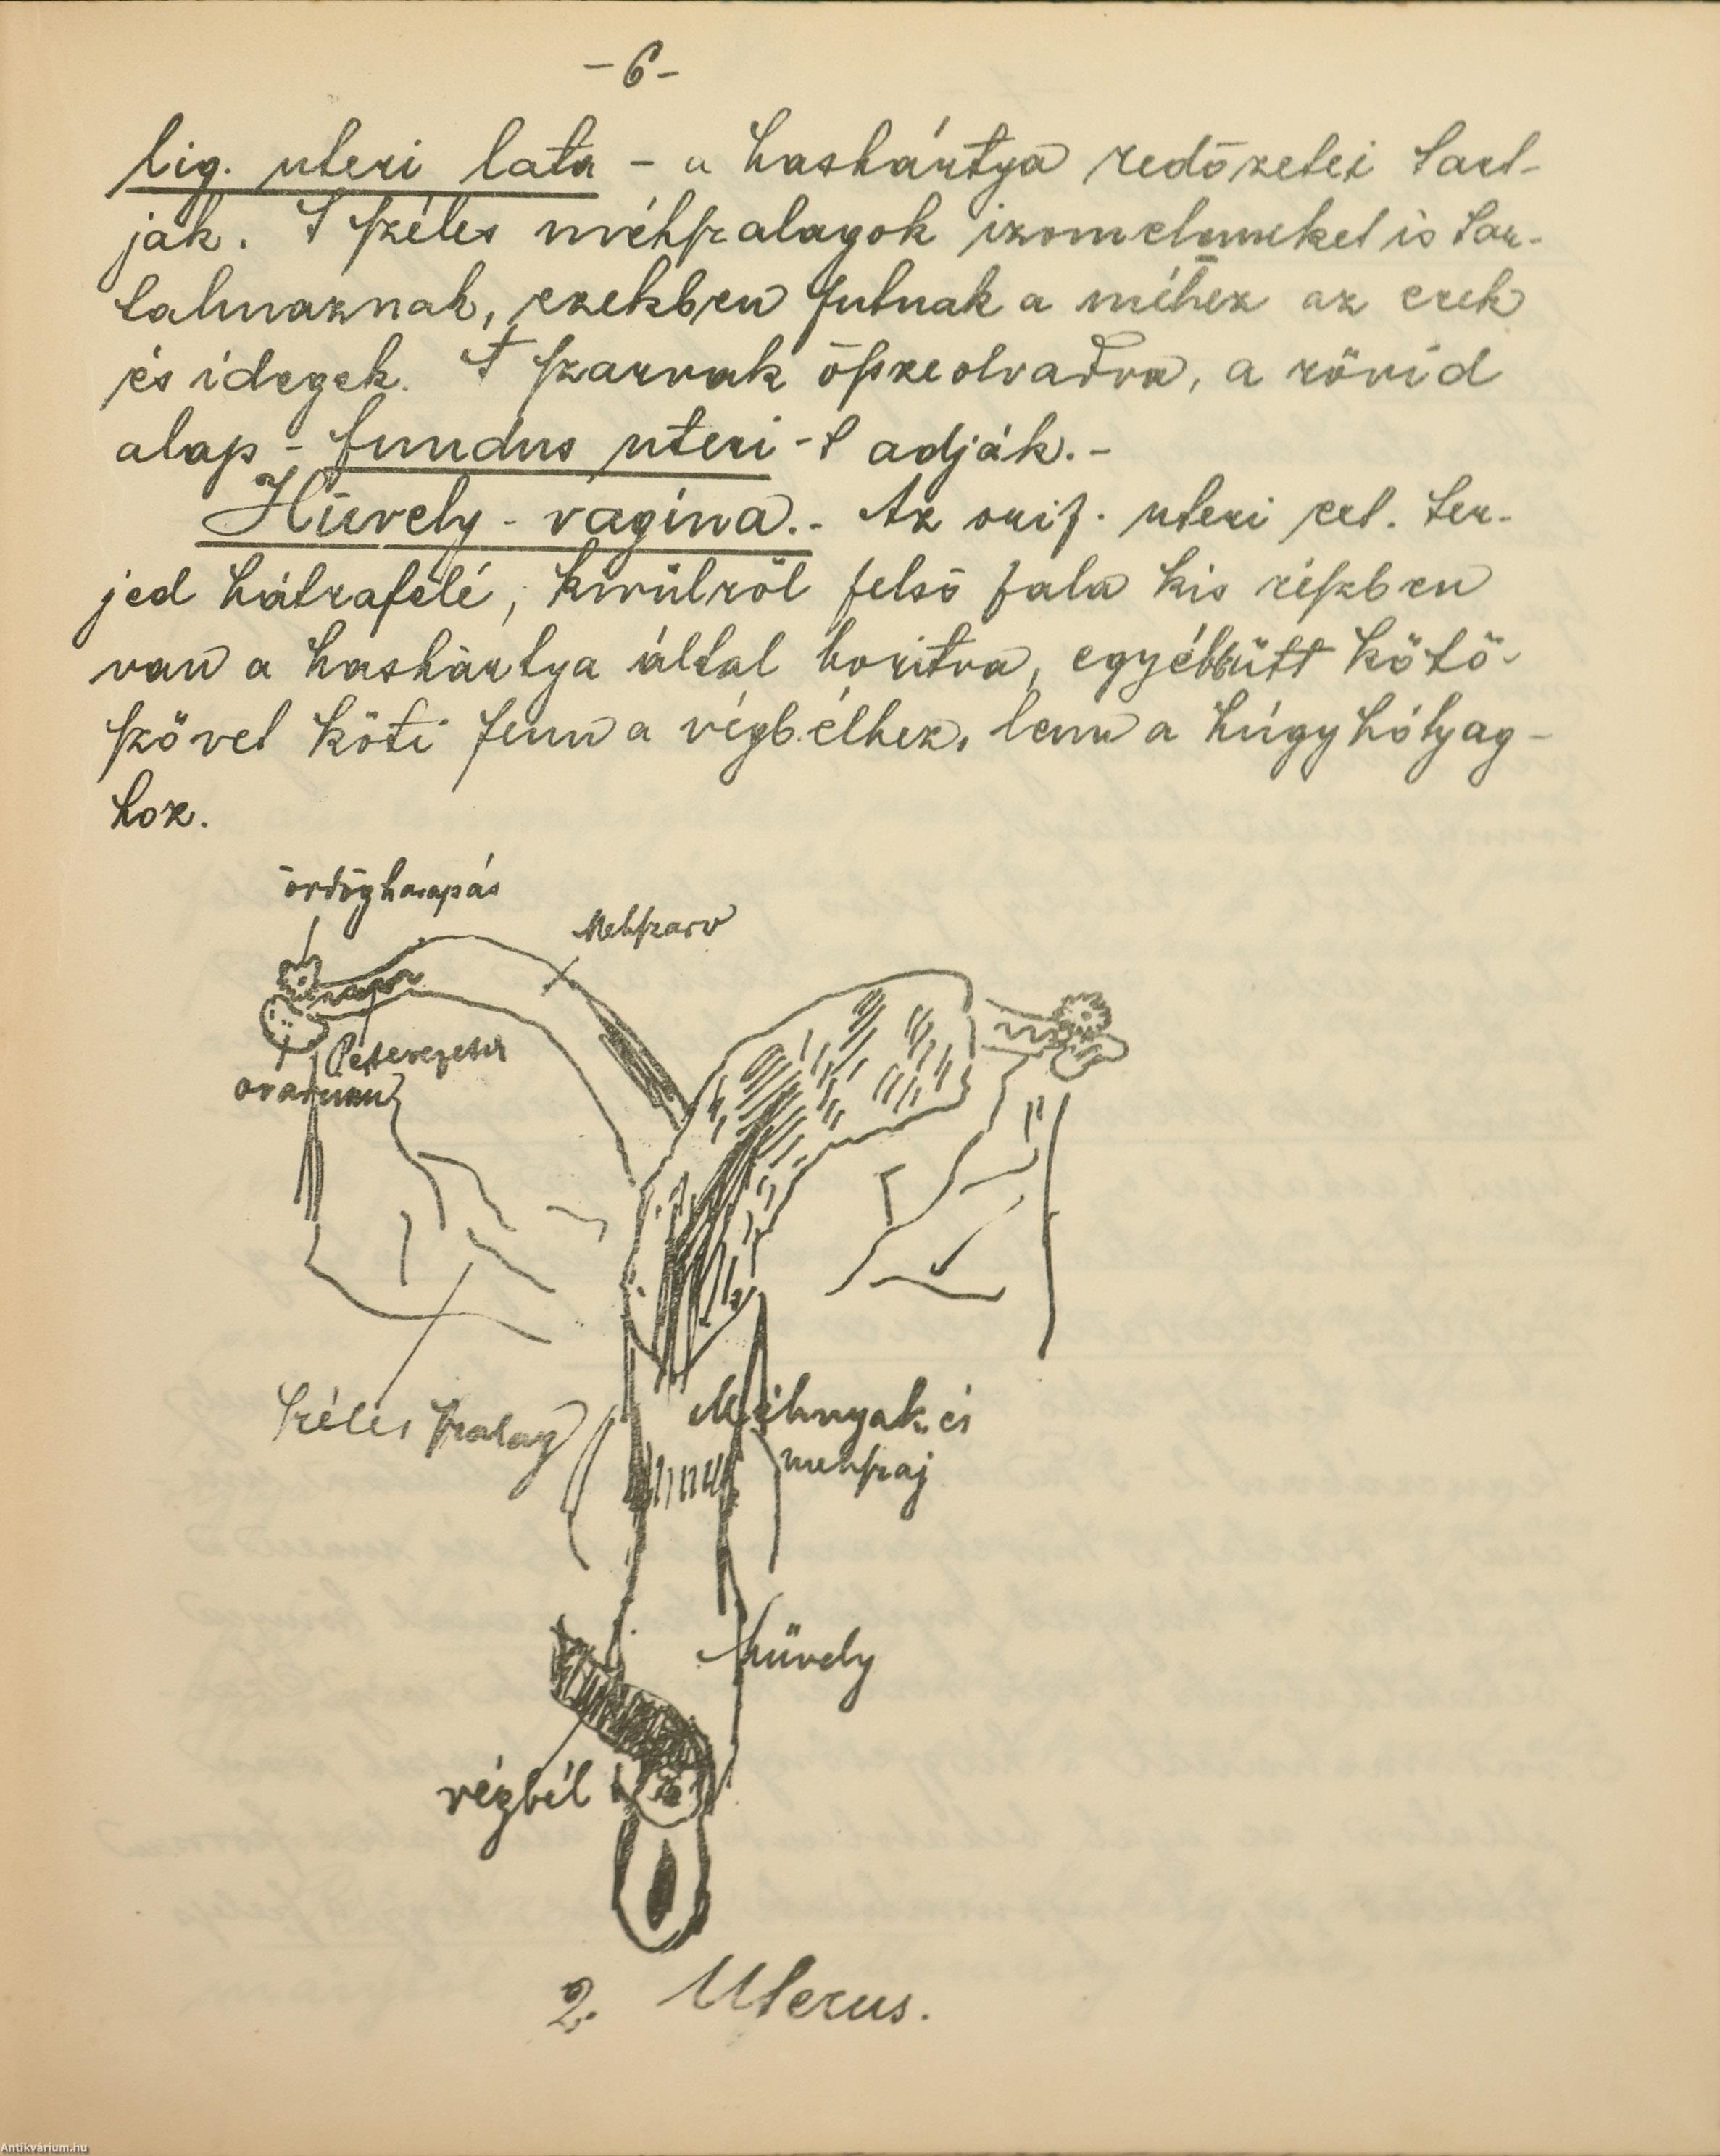 -6-
lig. uteri lata - a hashártya redőzetei tart-
ják. A széles méhszalagok izomelemeket is tar-
talmaznak, ezekben futnak a méhez az erek
és idegek. A szarvak összeolvadva, a rövid
alap - fundus uteri - t adják. -
Hüvely - vagina. - Az orif. uteri ext. ter-
jed hátrafelé, kívülről felső fala kis részben
van a hashártya által borítva, egyébütt kötő-
szövet köti fenn a végbélhez, lenn a húgyhólyag-
hoz.
ördögharapás
Mehszarv
Petevezeték
ovarium
Széles szalag
Méhnyak és
mehszaj
hüvely
végbél
2. Uterus.
Antikvárium.hu